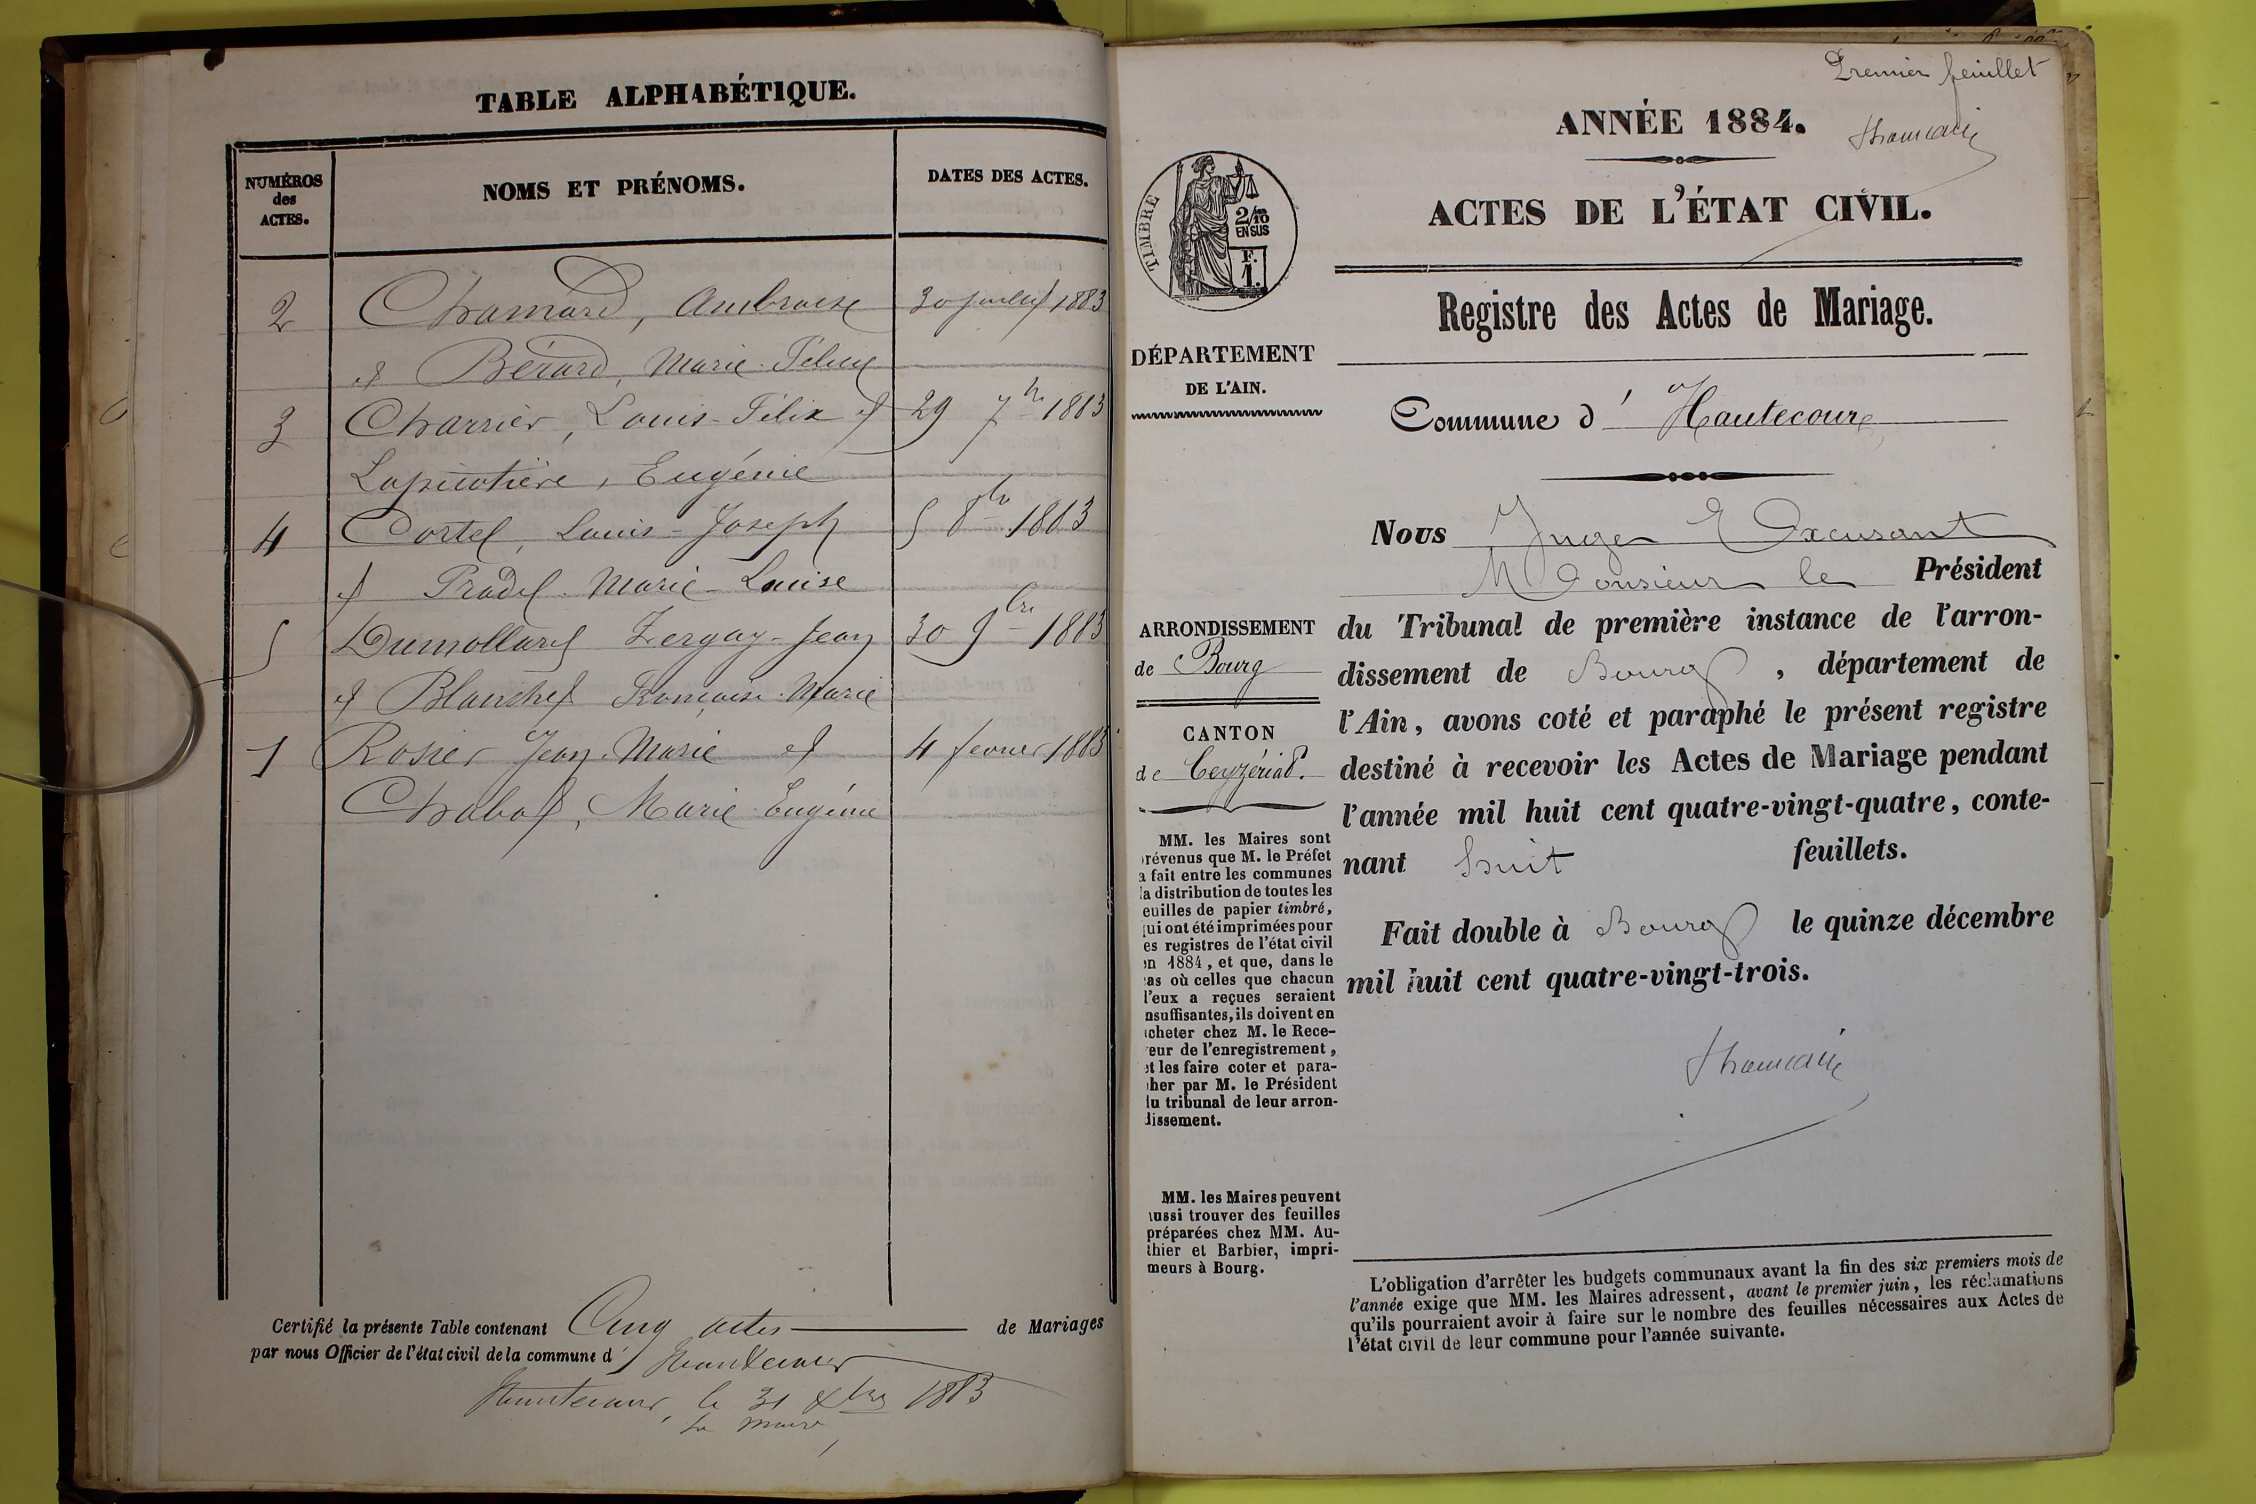 TABLE ALPHABÉTIQUE.
NUMÉROS
des
ACTES.
NOMS ET PRÉNOMS.
DATES DES ACTES.
2 Chamard, Ambroise 30 juillet 1883
et Bérard, Marie-Félicie
3 Charrier, Louis-Félix et 29 7bre 1883
Lapicotière, Eugénie
4 Cortel, Louis-Joseph 5 8bre 1883
et Pradel Marie-Louise
5 Dumollard Jean 30 9bre 1883
et Blanchet Françoise-Marie
1 Rosier Jean-Marie et 4 fevrier 1883
Chabot, Marie-Eugénie
Certifié la présente Table contenant Cinq actes de Mariages
par nous Officier de l'état civil de la commune d' Hautecour
Hautecour, le 31 Xbre 1883
Le Maire,
Premier feuillet
ANNÉE 1884.
ACTES DE L'ÉTAT CIVIL.
TIMBRE
2/10
EN SUS
F.
1.
Registre des Actes de Mariage.
DÉPARTEMENT
DE L'AIN.
Commune d' Hautecour
Nous Juge Excusant
Monsieur le Président
du Tribunal de première instance de l'arron-
dissement de Bourg, département de
l'Ain, avons coté et paraphé le présent registre
destiné à recevoir les Actes de Mariage pendant
l'année mil huit cent quatre-vingt-quatre, conte-
nant huit feuillets.
Fait double à Bourg le quinze décembre
mil huit cent quatre-vingt-trois.
ARRONDISSEMENT
de Bourg
CANTON
de Ceyzériat.
MM. les Maires sont
révenus que M. le Préfet
a fait entre les communes
la distribution de toutes les
euilles de papier timbré,
qui ont été imprimées pour
es registres de l'état civil
en 1884, et que, dans le
cas où celles que chacun
d'eux a reçues seraient
nsuffisantes, ils doivent en
acheter chez M. le Rece-
veur de l'enregistrement,
et les faire coter et para-
pher par M. le Président
du tribunal de leur arron-
dissement.
MM. les Maires peuvent
aussi trouver des feuilles
préparées chez MM. Au-
thier et Barbier, impri-
meurs à Bourg.
L'obligation d'arrêter les budgets communaux avant la fin des six premiers mois de
l'année exige que MM. les Maires adressent, avant le premier juin, les réclamations
qu'ils pourraient avoir à faire sur le nombre des feuilles nécessaires aux Actes de
l'état civil de leur commune pour l'année suivante.